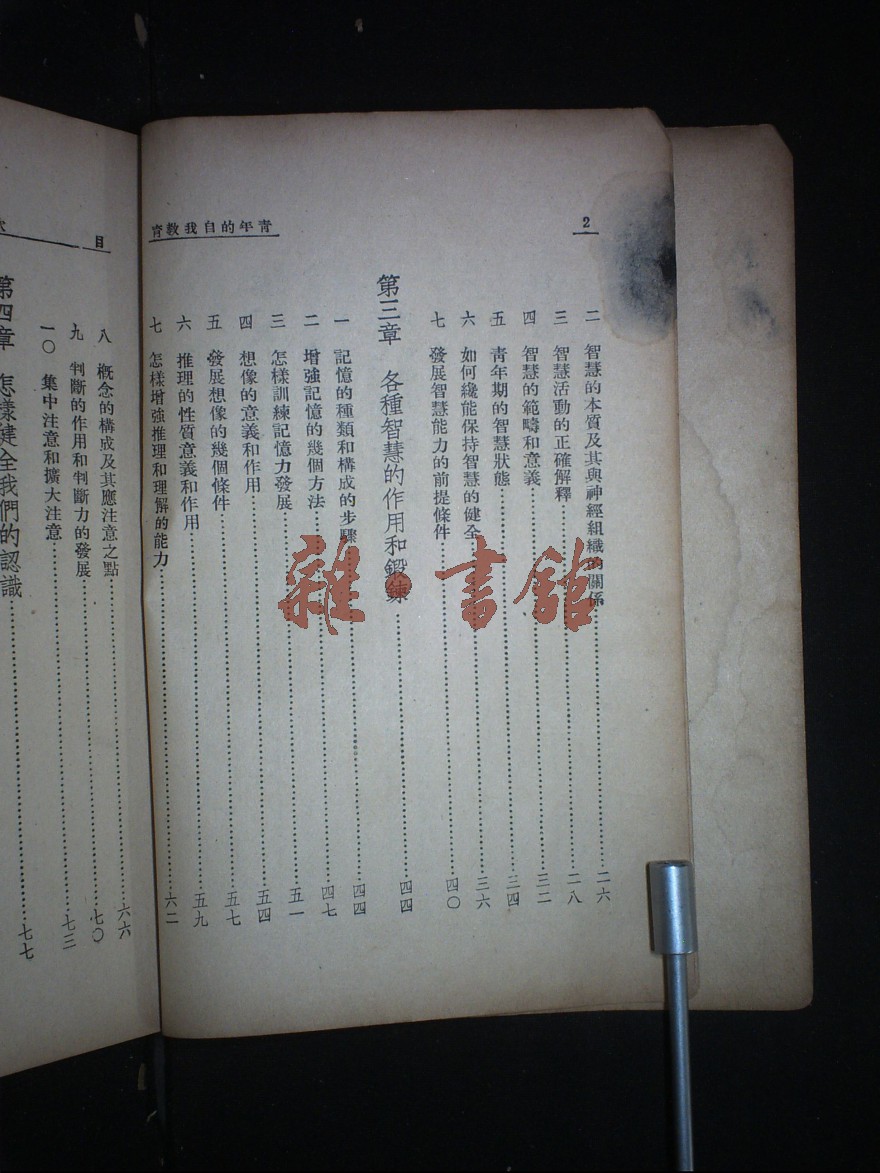 2
青年的自我教育
二 智慧的本質及其與神經組織的關係……二六
三 智慧活動的正確解釋……二八
四 智慧的範疇和意義……三二
五 青年期的智慧狀態……三四
六 如何纔能保持智慧的健全……三六
七 發展智慧能力的前提條件……四〇
第三章 各種智慧的作用和鍛鍊……四四
一 記憶的種類和構成的步驟……四四
二 增強記憶的幾個方法……四七
三 怎樣訓練記憶力發展……五一
四 想像的意義和作用……五四
五 發展想像的幾個條件……五七
六 推理的性質意義和作用……五九
七 怎樣增強推理和理解的能力……六二
目
八 概念的構成及其應注意之點……六六
九 判斷的作用和判斷力的發展……七〇
一〇 集中注意和擴大注意……七三
第四章 怎樣健全我們的認識……七七
雜·書館